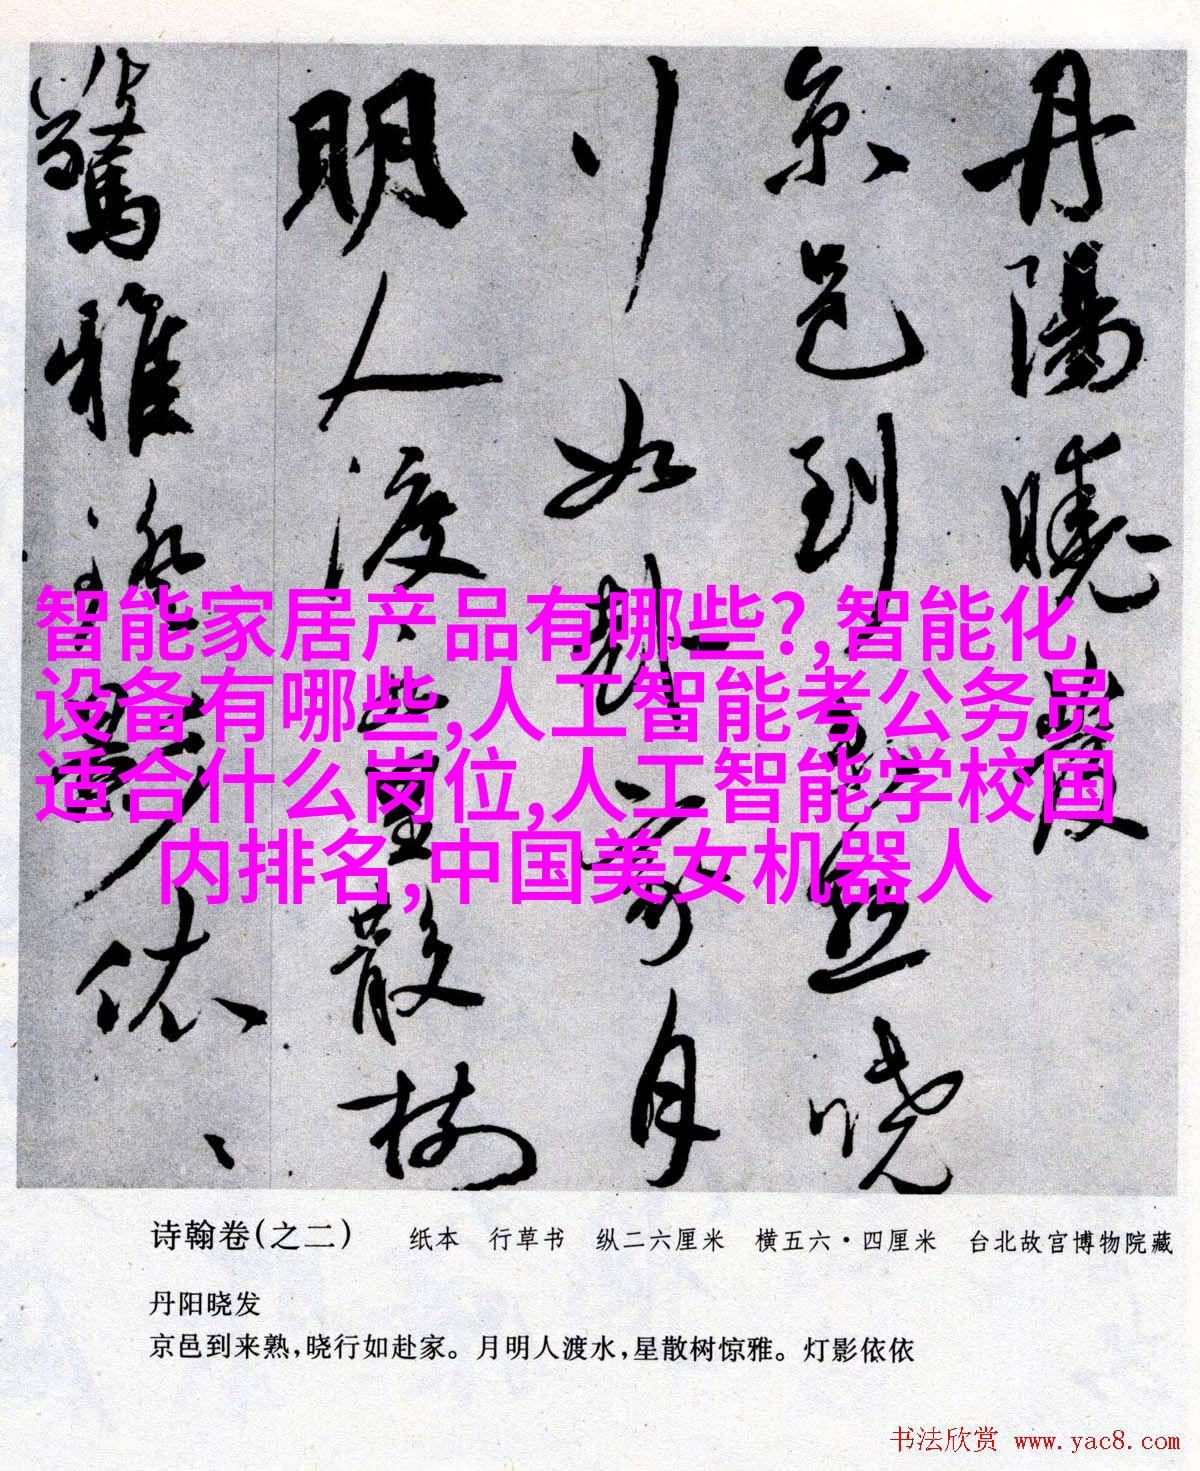 丹陽曉發
京邑到来熟曉
行如赴家月
明人渡水星散樹
驚雅燈影依〻
智能家居产品有哪些?,智能化
设备有哪些,人工智能考公务员
适合什么岗位,人工智能学校国
内排名,中国美女机器人
诗翰卷(之二) 纸本 行草书 纵二六厘米 横五六·四厘米 台北故宫博物院藏
丹阳晓发
京邑到来熟,晓行如赴家。月明人渡水,星散树惊雅。灯影依依
书法欣赏 www.yac8.com